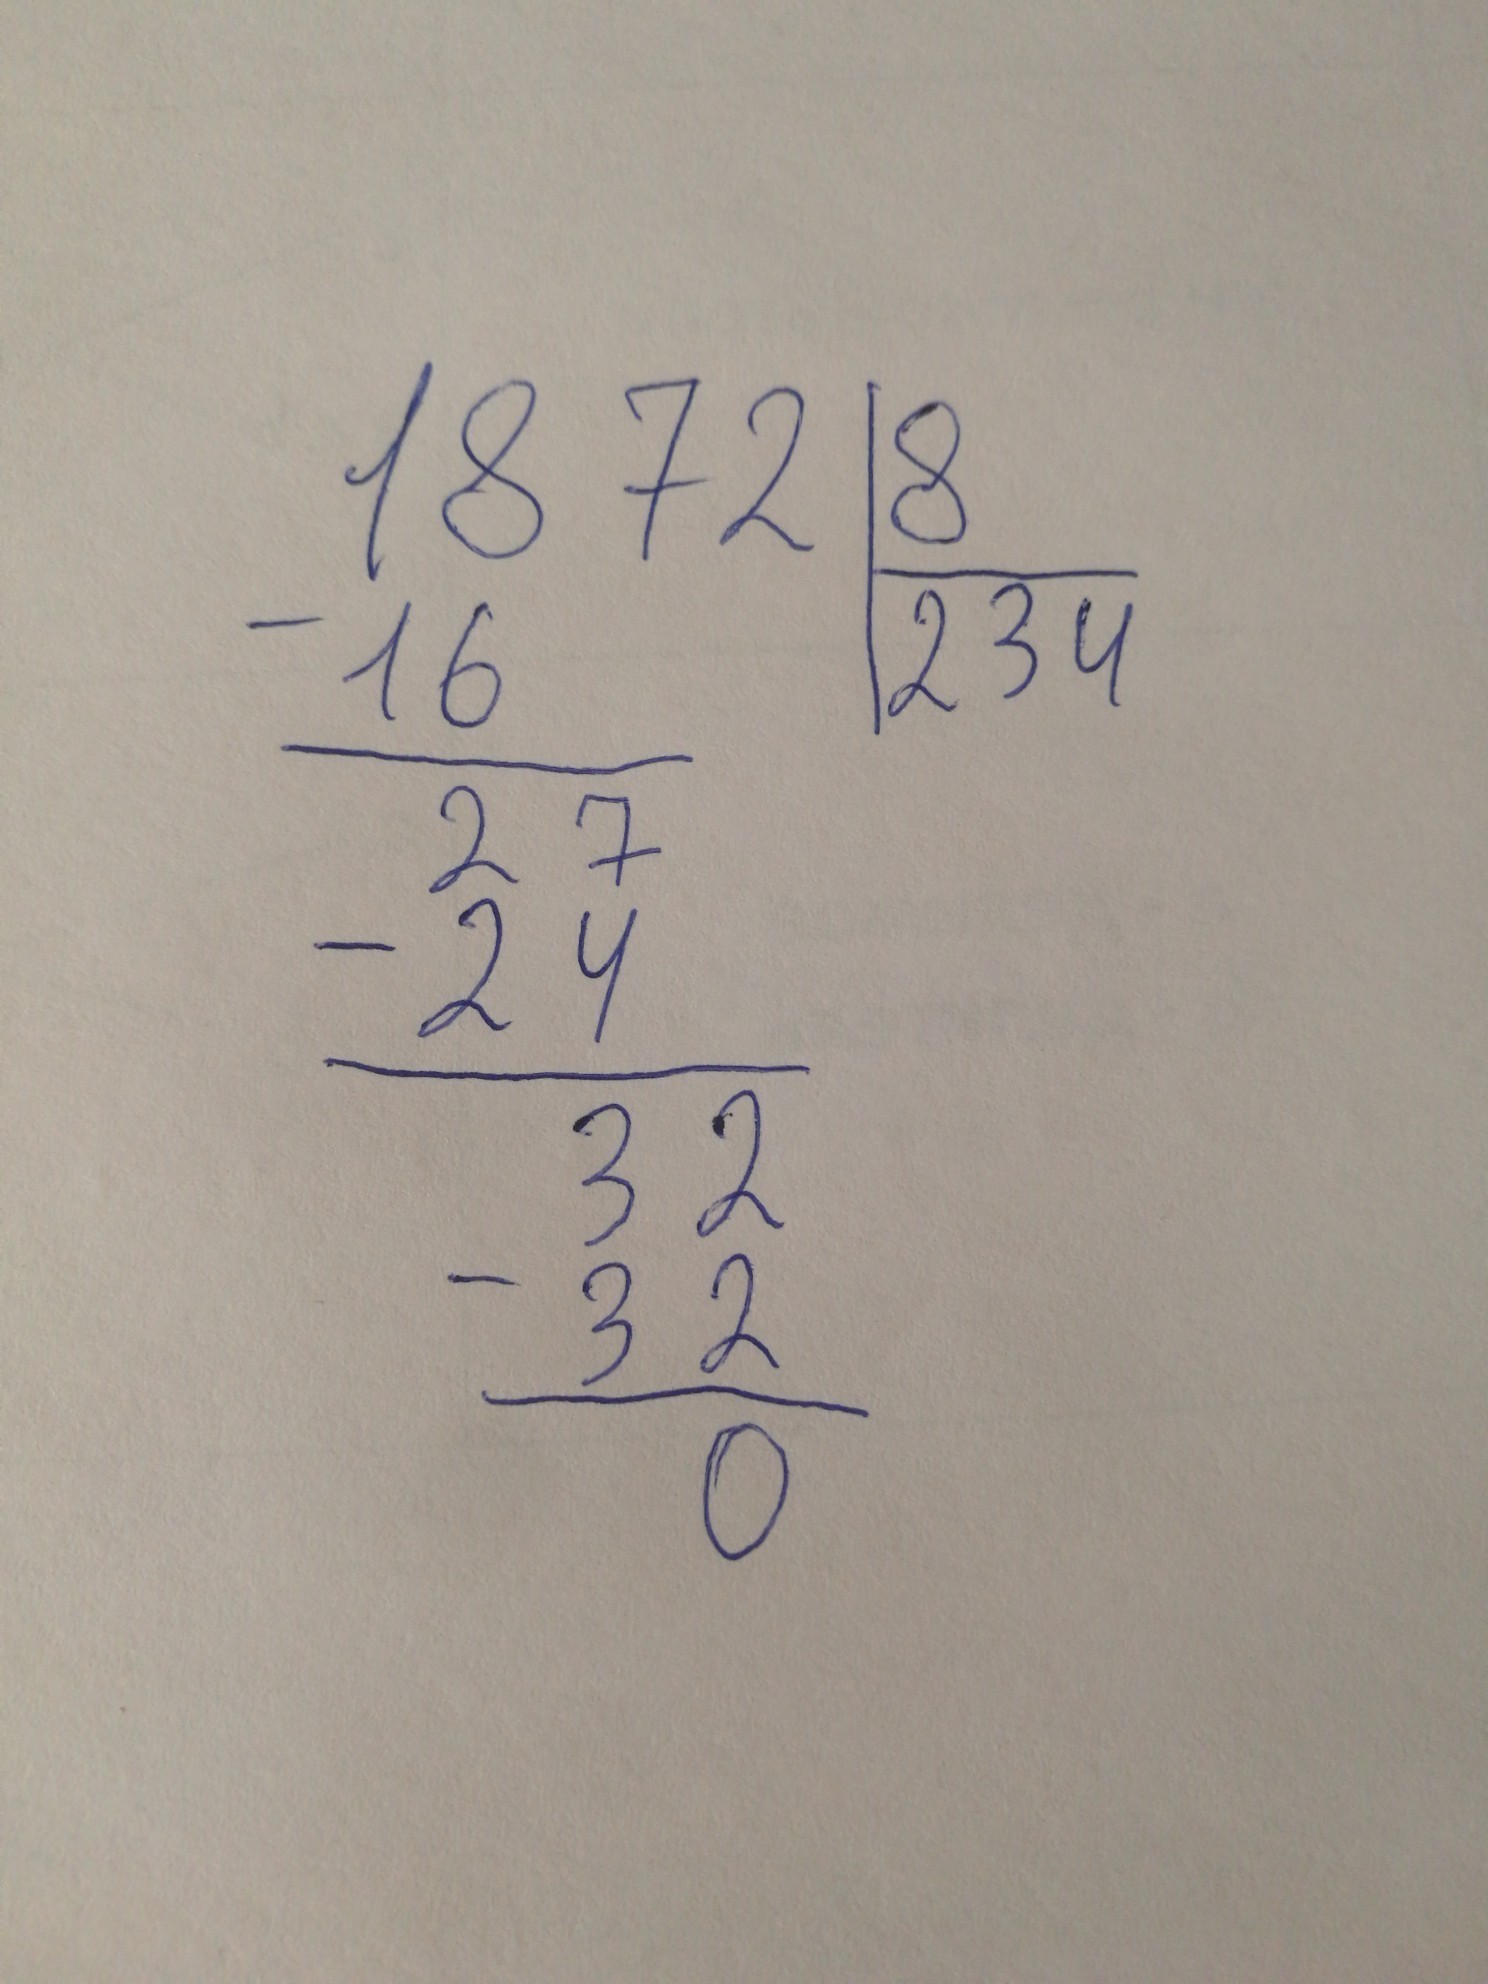 1872 8
-16 234
27
-24
32
-32
0